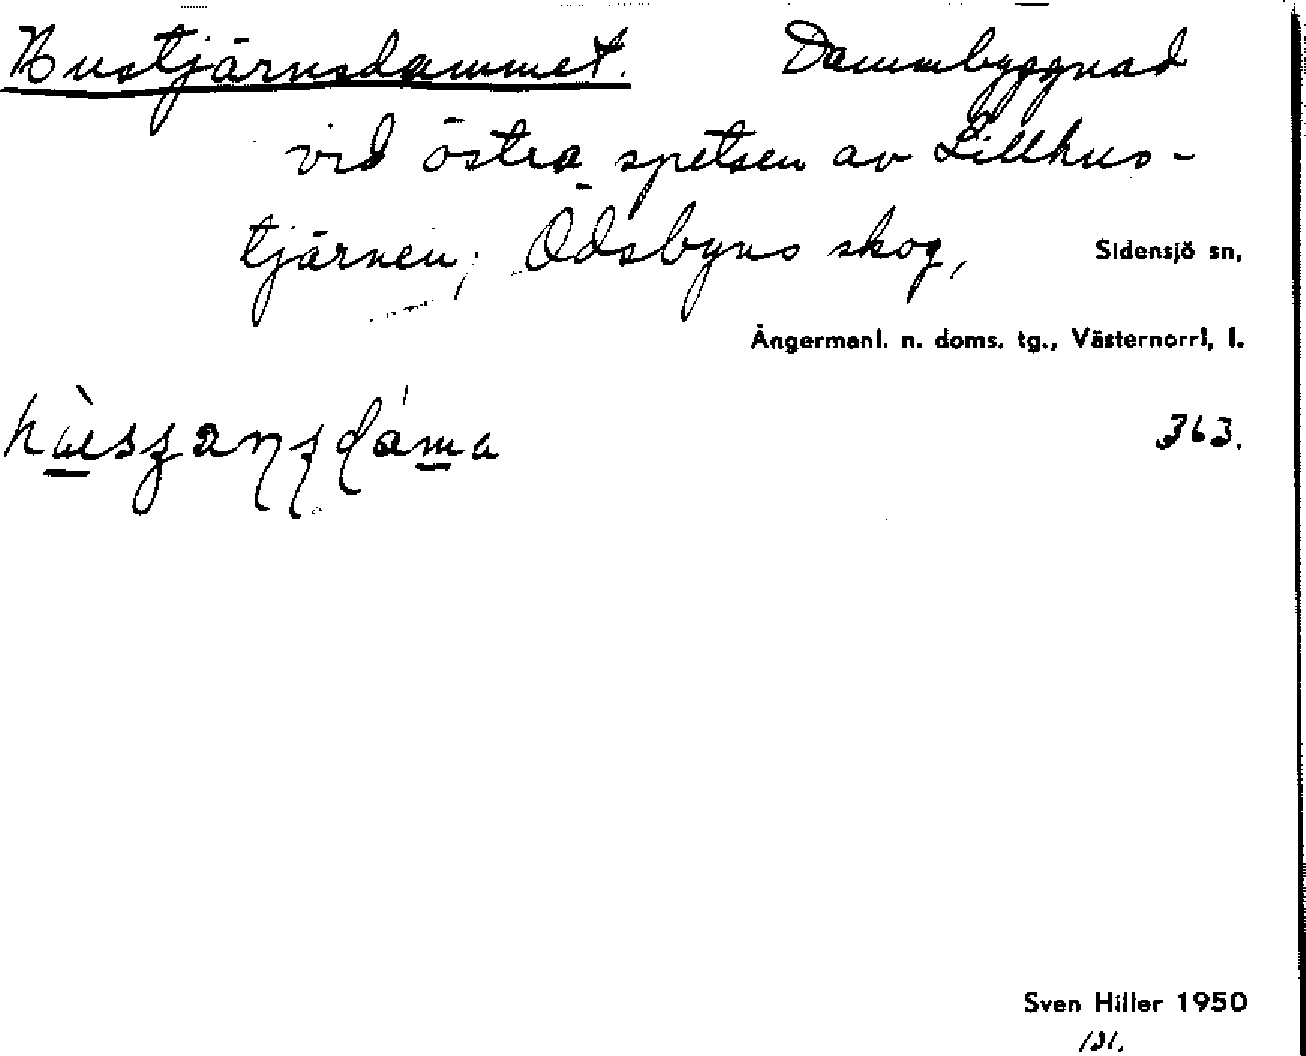 Hustjärnsdammet. Dammbyggnad
vid östra spetsen av Lillhus-
tjärnen, Ödsbyns skog, Sidensjö sn.
Ångermanl. n. doms. tg., Västernorrl. l.
363.
Sven Hiller 1950